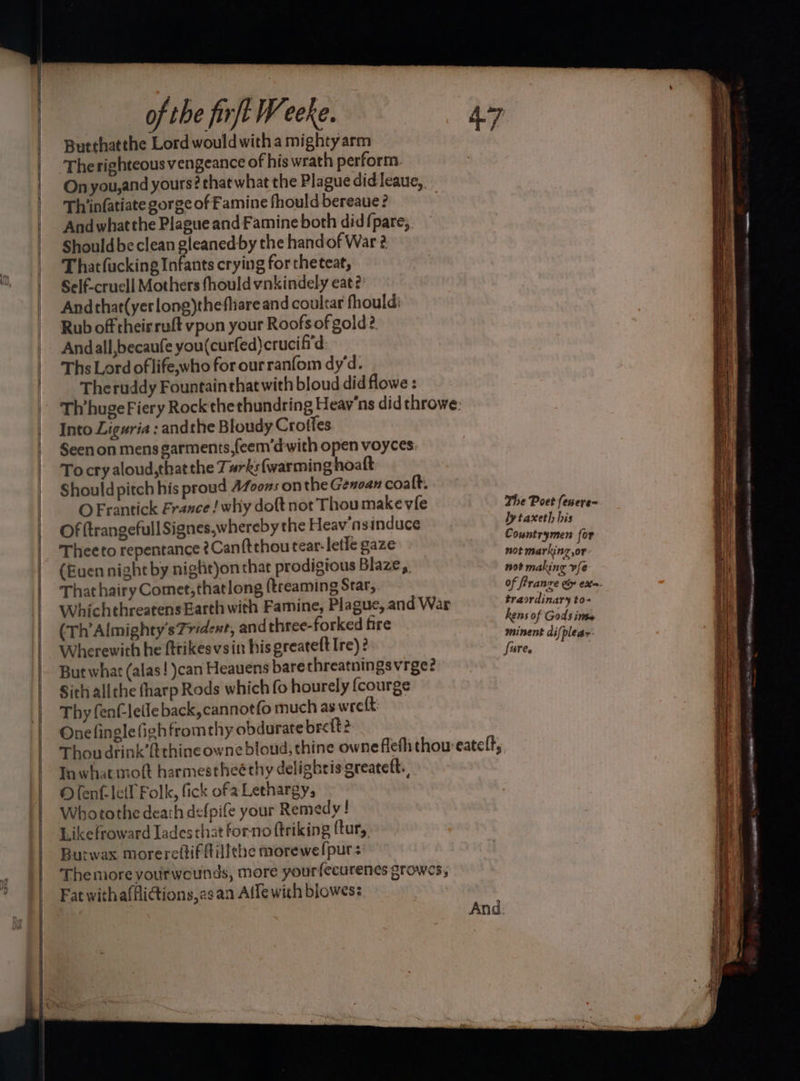 of the firſt Weeke. 47
But that the Lord would with a mighty arm
The righteous vengeance of his wrath perform
On you, and yours? that what the Plague did leaue,
Th'inſatiate gorge of Famine ſhould bereaue?
And what the Plague and Famine both did ſpare,
Should be clean gleaned by the hand of War?
That ſucking Infants crying for the teat,
Self-cruell Mothers ſhould vnkindely eat?
And that (yer long) the ſhare and coultar ſhould
Rub off their ruſt vpon your Roofs of gold?
And all, becauſe you (curſed) crucifi'd
Ths Lord of life, who for our ranſom dy'd.
The ruddy Fountain that with bloud did flowe:
Th'huge Fiery Rock the thundring Heav'ns did throwe:
Into Liguria: and the Bloudy Croſſes
Seen on mens garments, ſeem'd with open voyces
To cry aloud, that the Turks ſwarming hoaſt
Should pitch his proud Moons on the Genoan coaſt.
O Frantick France! why doſt not Thou make vſe
Of ſtrangefull Signes, whereby the Heav'ns induce
Thee to repentance? Canſt thou tear-leſſe gaze
(Euen night by night) on that prodigious Blaze,
That hairy Comet, that long ſtreaming Star,
Which threatens Earth with Famine, Plague, and War
(Th'Almighty's Trident, and three-forked fire
Wherewith he ſtrikes vs in his greateſt Ire)?
But what (alas!) can Heauens bare threatnings vrge?
Sith all the ſharp Rods which ſo hourely ſcourge
Thy ſenſ-leſſe back, cannot ſo much as wreſt
One ſingle ſigh from thy obdurate breſt?
Thou drink'ſt thine owne bloud, thine owne fleſh thou eateſt,
In what moſt harmes thee thy delight is greateſt.
O ſenſ-leſſ Folk, ſick of a Lethargy,
Who to the death deſpiſe your Remedy!
Like froward Iades that for no ſtriking ſtur,
But wax more reſtif ſtill the more we ſpur:
The more your wounds, more your ſecurenes growes,
Fat with afflictions, as an Aſſe with blowes:
And
The Poet ſevere-
ly taxeth his
Countrymen for
not marking, or
not making vſe
of ſtrange & ex-
traordinary to-
kens of Gods im-
minent diſplea-
ſure.